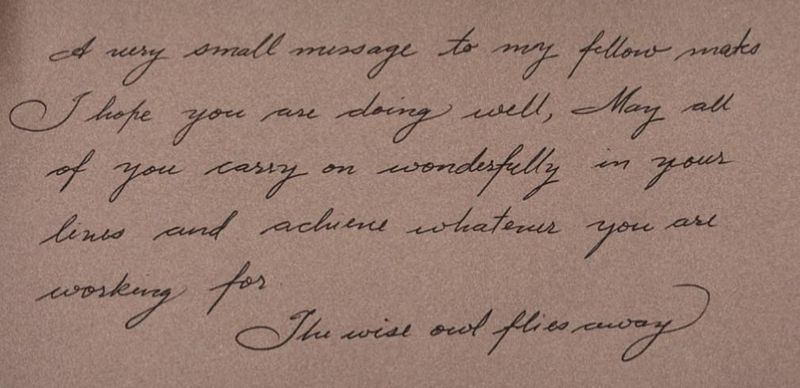 A very small message to my fellow mates
I hope you are doing well, May all
of you carry on wonderfully in your
lives and achieve whatever you are
working for
The wise owl flies away